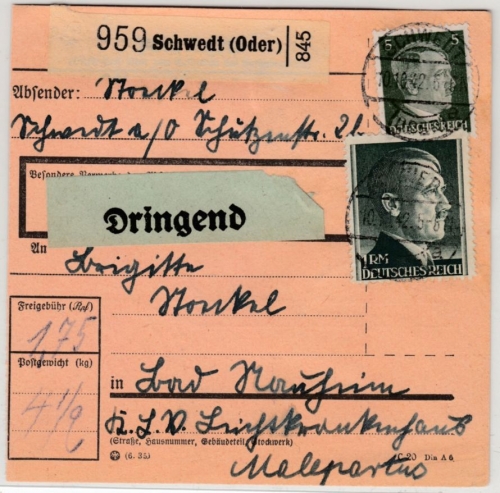 959 Schwedt (Oder) 845
5
Deutsches Reich
Absender: Stockel
Schwedt a/O Schützenstr. 21.
Dringend
1 RM
DEUTSCHES REICH
An
Brigitte
Stockel
Freigebühr (Ref)
1,75
Postgewicht (kg)
4 1/2
in Bad Nauheim
K. L. V. Leichtkrankenhaus
(Straße, Hausnummer, Gebäudeteil, Stockwerk)
(6. 35)
C 20 Din A 6
Malepartus